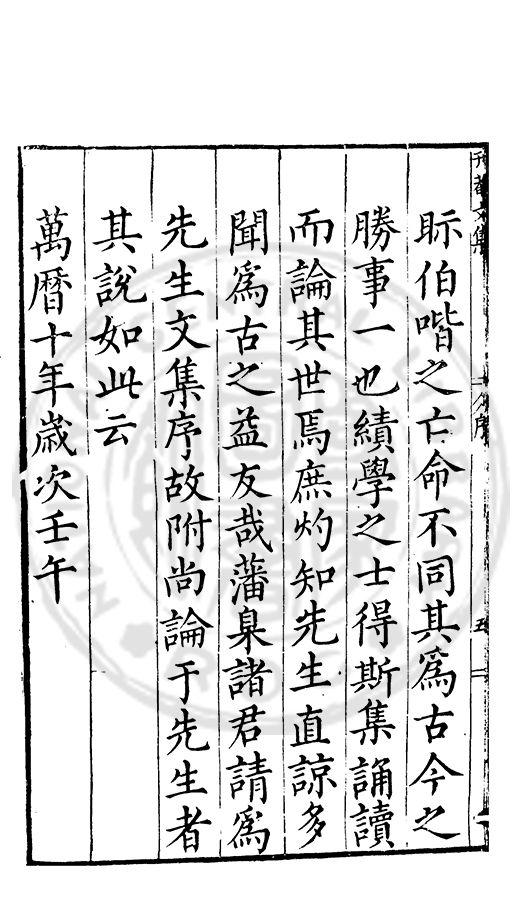 眎伯喈之亡命不同其爲古今之
勝事一也績學之士得斯集誦讀
而論其世焉庶灼知先生直諒多
聞爲古之益友哉藩臬諸君請爲
先生文集序故附尚論于先生者
其說如此云
萬曆十年歲次壬午